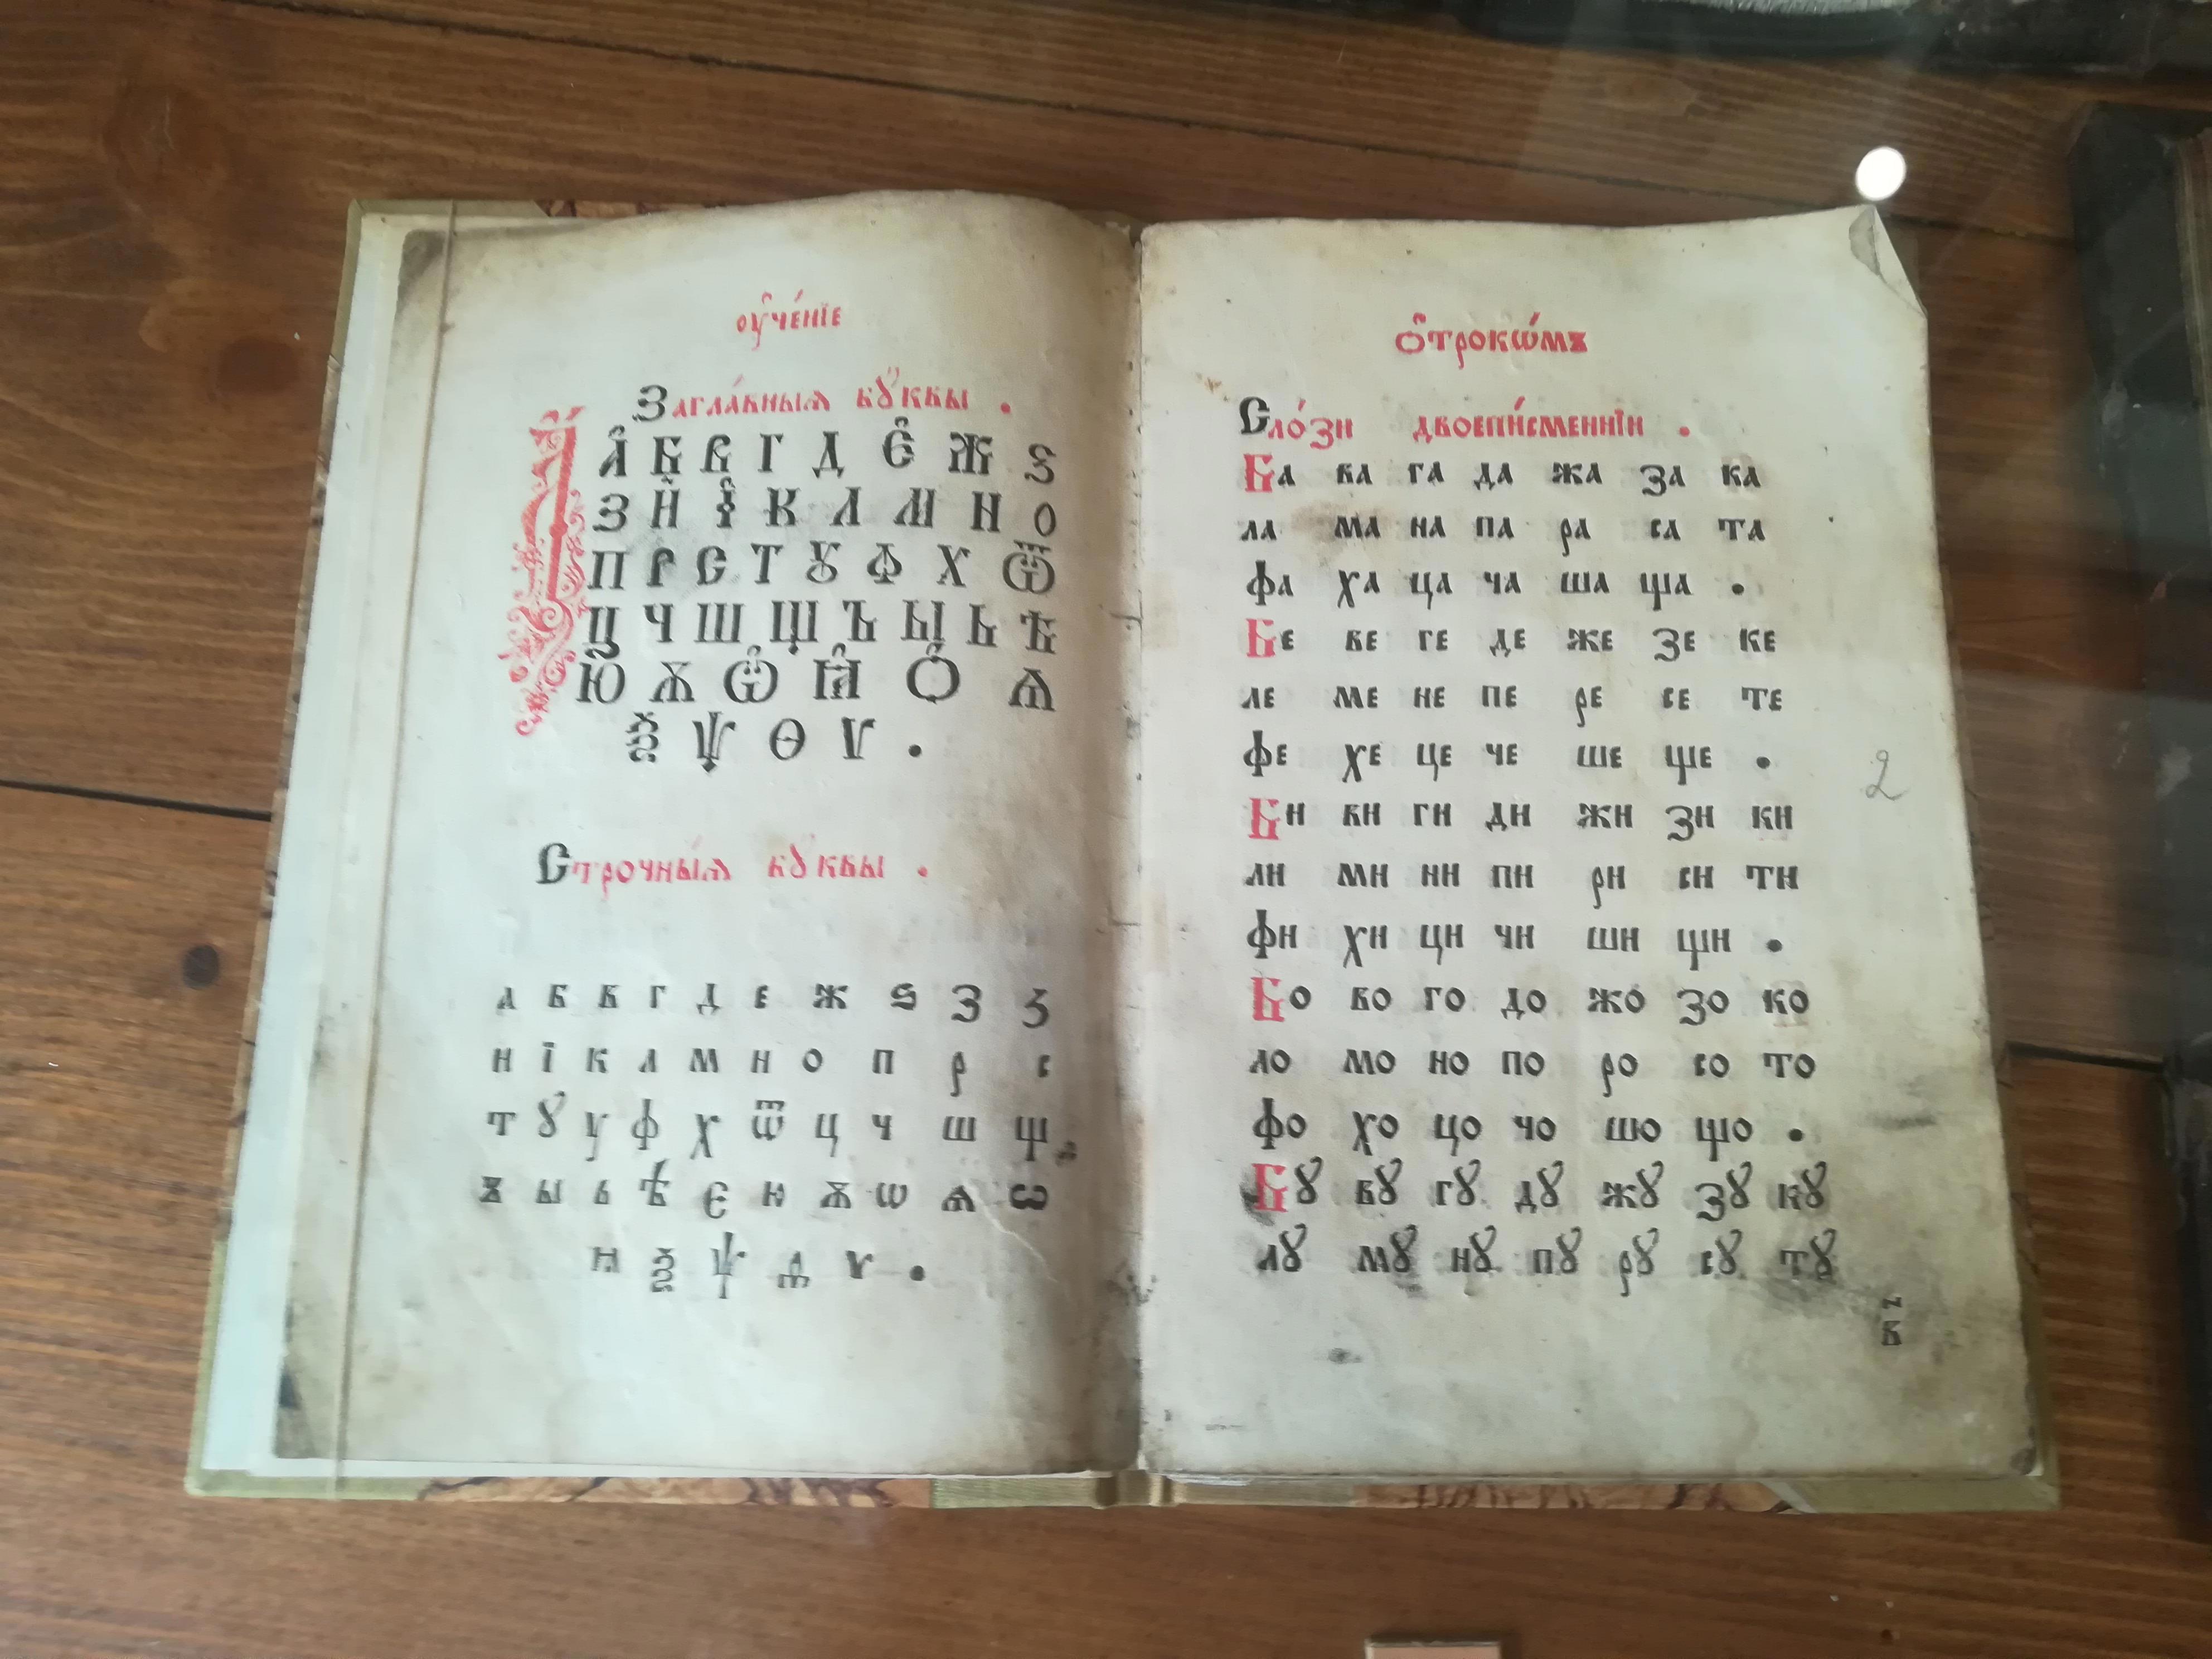 оу҆че́нїе
Загла́вныѧ бꙋ́квы .
А҆ Б В Г Д Є҆ Ж Ѕ
З И҆ І҆ К Л М Н О
П Р С Т Ꙋ Ф Х Ѿ
Ц Ч Ш Щ Ъ Ы Ь Ѣ
Ю Ѫ Ѽ Ꙗ҆ Ѻ҆ Ѧ
Ѯ Ѱ Ѳ Ѵ .
Стро́чныѧ бꙋ́квы .
а б в г д е ж ѕ з ꙁ
и ї к л м н о п р с
т ꙋ у ф х ѿ ц ч ш щ
ъ ы ь ѣ є ю ѫ ѡ ѧ ꙍ
ꙗ ѯ ѱ ѳ ѵ .
ѻ҆трокѡ́мъ
Сло́зи двоепи́сменнїи .
Ба ва га да жа за ка
ла ма на па ра са та
фа ха ца ча ша ща .
Бе ве ге де же зе ке
ле ме не пе ре се те
фе хе це че ше ще .
Би ви ги ди жи зи ки
ли ми ни пи ри си ти
фи хи ци чи ши щи .
Бо во го до жо зо ко
ло мо но по ро со то
фо хо цо чо шо що .
Бꙋ вꙋ гꙋ дꙋ жꙋ зꙋ кꙋ
лꙋ мꙋ нꙋ пꙋ рꙋ сꙋ тꙋ
2
в҃